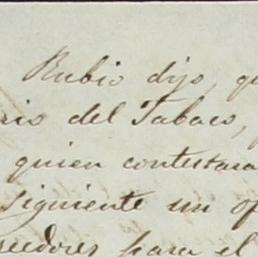 Rubio dijo, qu
rio del Tabaco,
quien contestara
siguiente un of
eedores para el